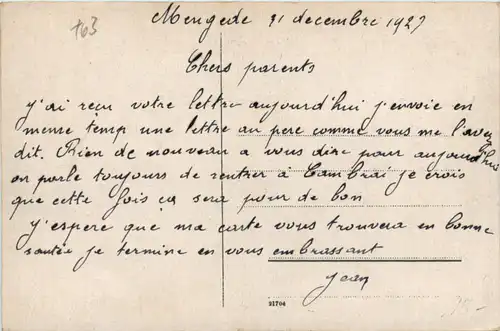 +63
Mengede 31 decembre 1923
Chers parents
j'ai reçu votre lettre aujourd'hui j'envoie en
meme temp une lettre au pere comme vous me l'avez
dit. Rien de nouveau a vous dire pour aujourd'hui
on parle toujours de rentrer à Cambrai je crois
que cette fois ca sera pour de bon
j'espere que ma carte vous trouvera en bonne
santée je termine en vous embrassant
Jean
21704